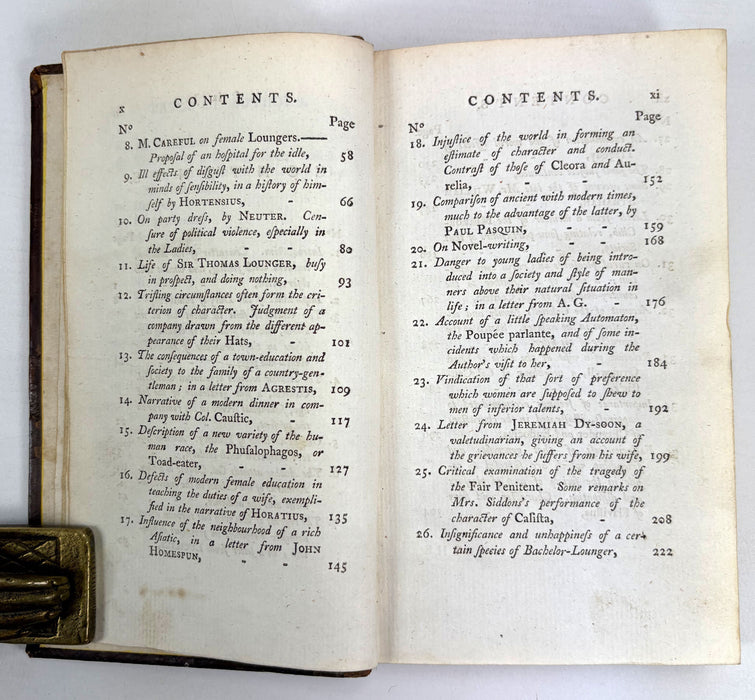 x
CONTENTS.
Nº Page
8. M. CAREFUL on female Loungers.——
Propoſal of an hoſpital for the idle, 58
9. Ill effects of diſguſt with the world in
minds of ſenſibility, in a hiſtory of him-
ſelf by HORTENSIUS, - 66
10. On party dreſs, by NEUTER. Cen-
ſure of political violence, eſpecially in
the Ladies, - - 80
11. Life of SIR THOMAS LOUNGER, buſy
in proſpect, and doing nothing, 93
12. Trifling circumſtances often form the cri-
terion of character. Judgment of a
company drawn from the different ap-
pearance of their Hats, - 101
13. The conſequences of a town-education and
ſociety to the family of a country-gen-
tleman; in a letter from AGRESTIS, 109
14. Narrative of a modern dinner in com-
pany with Col. Cauſtic, - 117
15. Deſcription of a new variety of the hu-
man race, the Phuſalophagos, or
Toad-eater, - - 127
16. Defects of modern female education in
teaching the duties of a wife, exempli-
fied in the narrative of HORATIUS, 135
17. Influence of the neighbourhood of a rich
Aſiatic, in a letter from JOHN
HOMESPUN, - - 145
CONTENTS. xi
Nº Page
18. Injuſtice of the world in forming an
eſtimate of character and conduct.
Contraſt of thoſe of Cleora and Au-
relia, - - 152
19. Compariſon of ancient with modern times,
much to the advantage of the latter, by
PAUL PASQUIN, - - 159
20. On Novel-writing, - - 168
21. Danger to young ladies of being intro-
duced into a ſociety and ſtyle of man-
ners above their natural ſituation in
life; in a letter from A. G. - 176
22. Account of a little ſpeaking Automaton,
the Poupée parlante, and of ſome in-
cidents which happened during the
Author's viſit to her, - 184
23. Vindication of that ſort of preference
which women are ſuppoſed to ſhew to
men of inferior talents, - 192
24. Letter from JEREMIAH DY-SOON, a
valetudinarian, giving an account of
the grievances he ſuffers from his wife, 199
25. Critical examination of the tragedy of
the Fair Penitent. Some remarks on
Mrs. Siddons's performance of the
character of Caliſta, - 208
26. Inſignificance and unhappineſs of a cer-
tain ſpecies of Bachelor-Lounger, 222